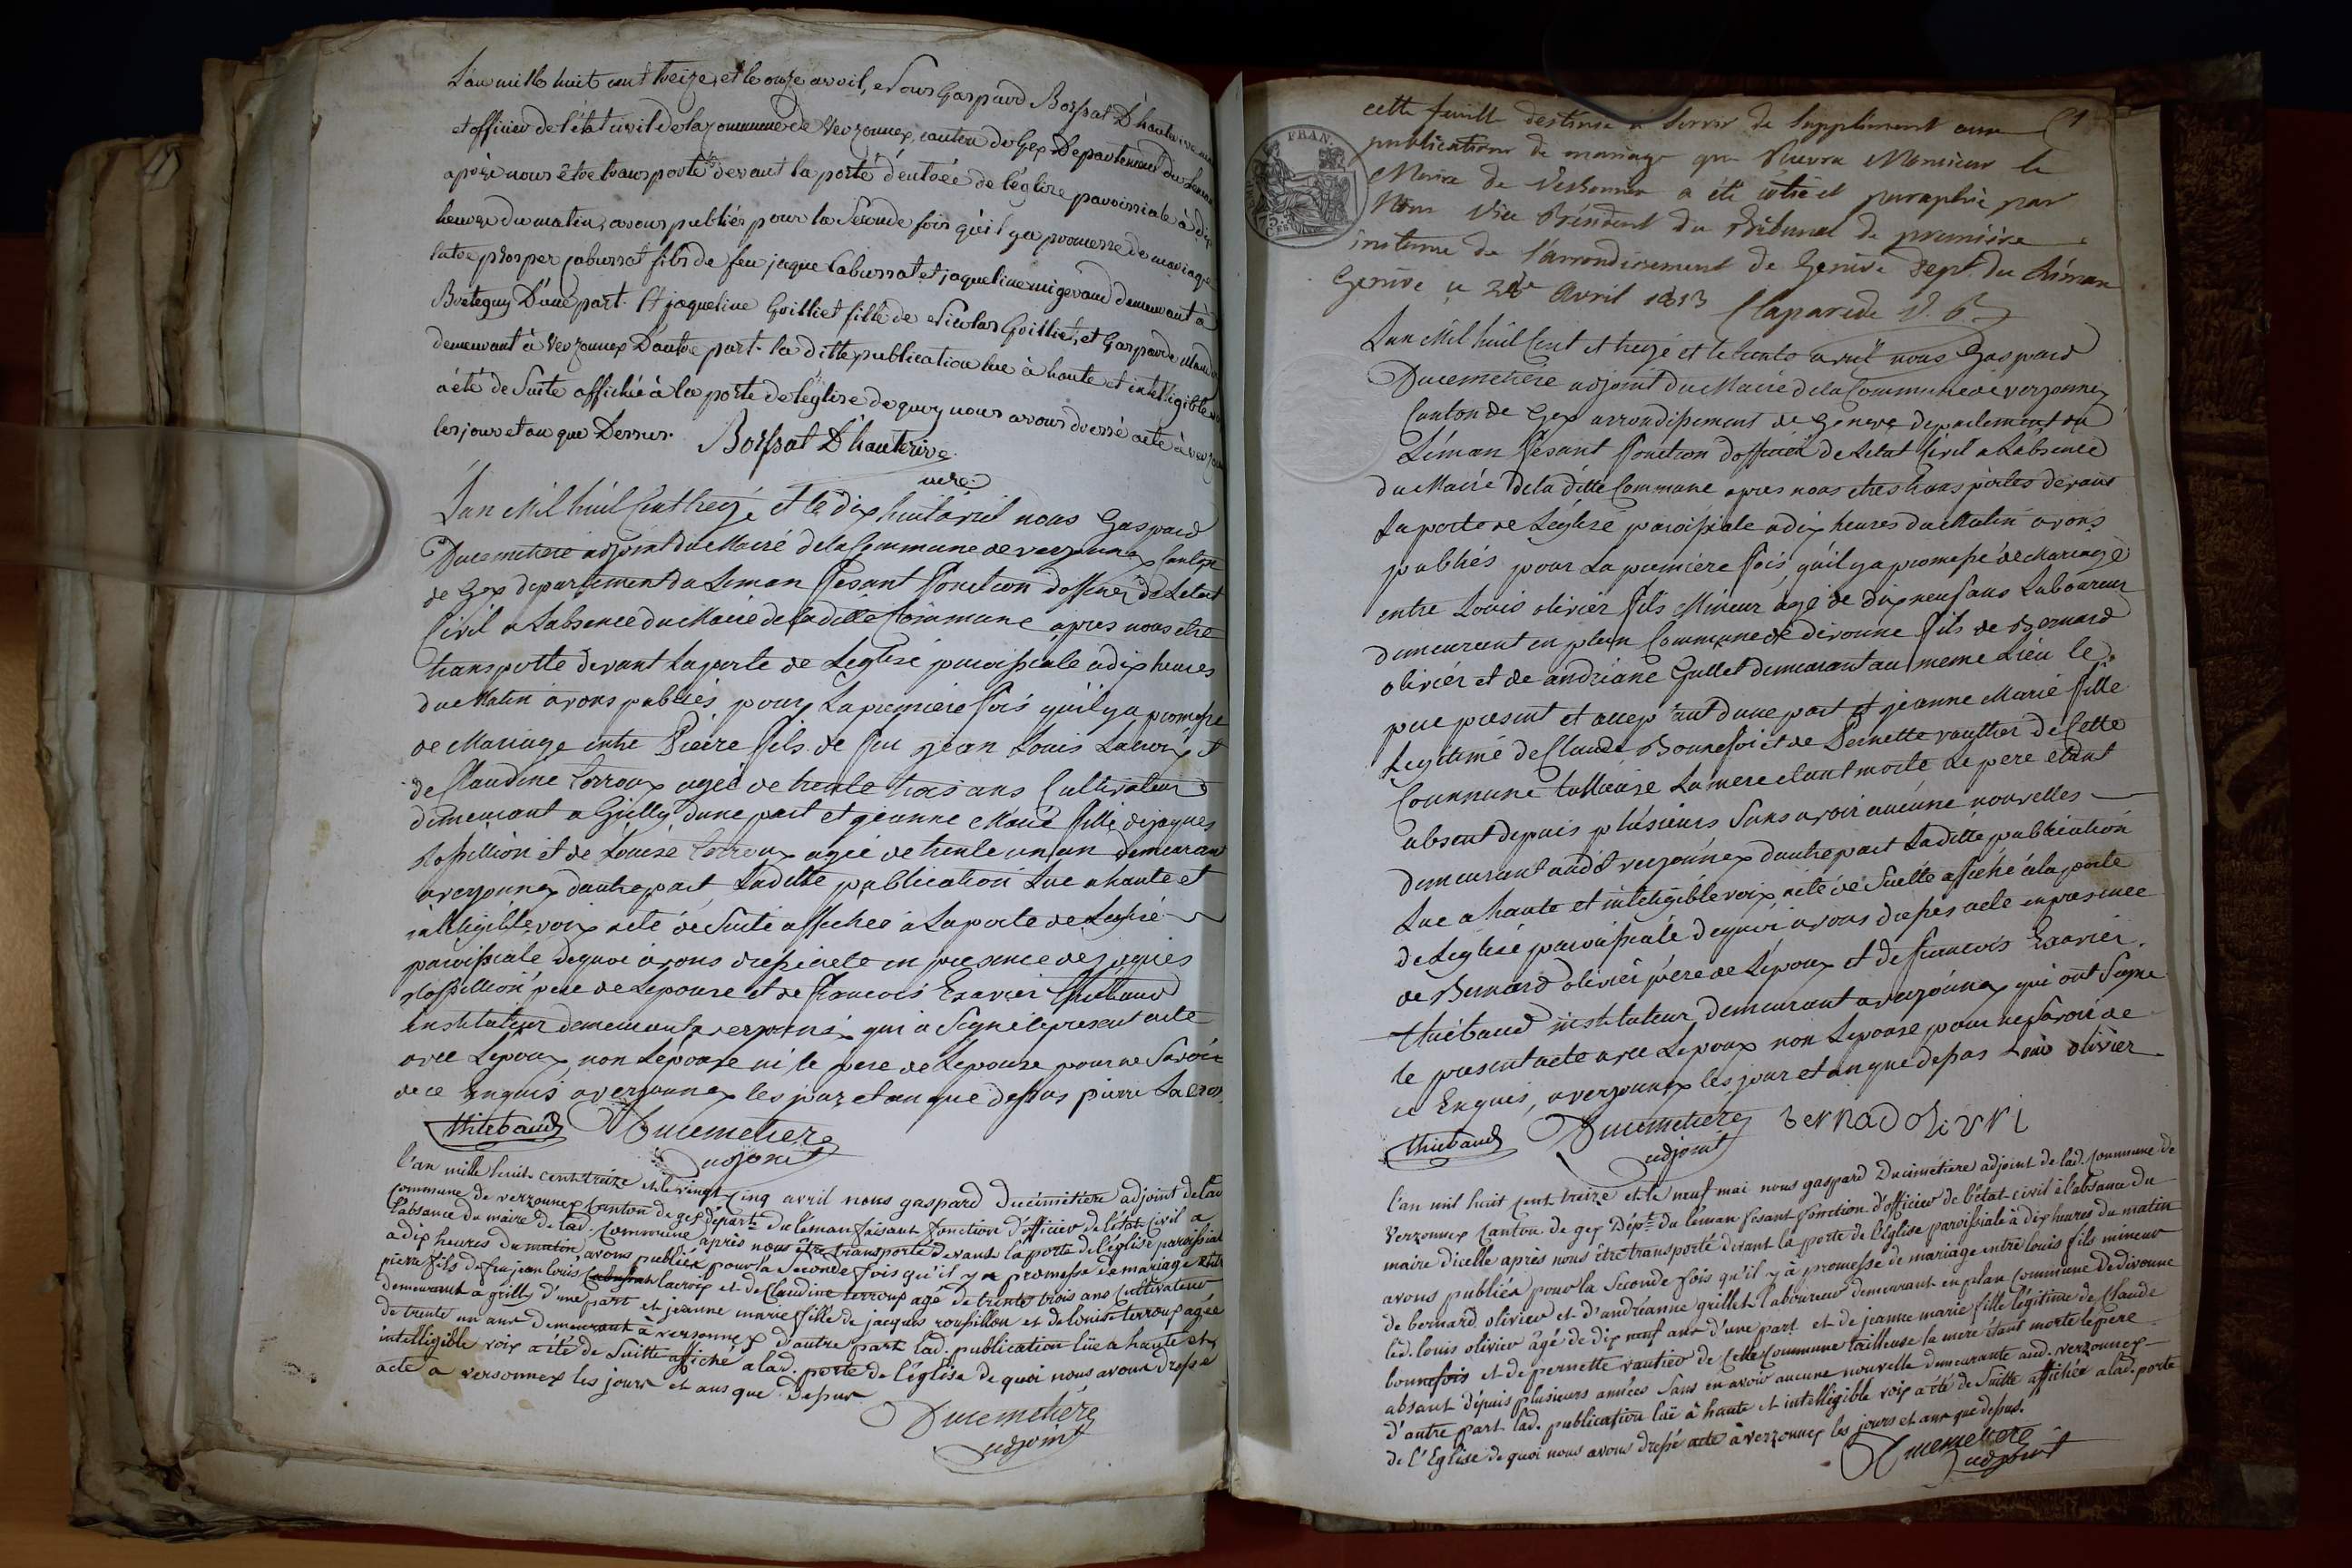 L'an mille huit cent treize, et le onze avril, Nous Gaspard Bossat D'hauterive
et officier de l'état civil de la Commune de Verzonnex, canton de Gex Departement du Leman
après nous être transportés devant la porte d'entrée de l'église paroissiale à dix
heures du matin, avons publiés pour la Seconde fois qu'il y a promesse de mariage
entre prosper Cabussat fils de feu jaque Cabussat et jaqueline migerand demeurant à
Bretegny D'une part. Et jaqueline Goilliet fille de Nicolas Goilliet, et Gasparde
demeurant à Verzonnex D'autre part. la ditte publication lue à haute et intelligible
a été de Suite affichée à la porte de l'église de quoy nous avons dressé acte à
les jour et an que Dessus. Bossat D'hauterive
L'an Mil huit Cent treize et le dix huit avril nous Gaspard
Ducemetiere adjoint du Maire de la Commune de verzonnex Canton
de Gex departement du Leman fesant fonction d'officier de Letat
Civil a Labsence du Maire de la ditte Commune apres nous etre
transporté devant la porte de Leglise paroissiale a dix heures
du Matin avons publiés pour La premiere fois qu'il y a promesse
de Mariage entre Pierre fils de feu jean Louis Lacroix et
de Claudine terroux agée de trente trois ans Cultivateur
demeurant a Grilly dune part et jeanne Marie fille de jaques
Rossillion et de Louise terroux agée de trente un an demeurant
a verzonnex dautre part Laditte publication lue a haute et
intelligible voix a été de Suite affichée à La porte de Leglise
paroissiale de quoi avons dressé acte en presence de jaques
Rossillion pere de Lepouse et de francois Exavier thiébaud
instituteur demeurant a verzonnex qui a Signé le present acte
avec Lepoux non Lépouse ni le pere de Lepouse pour ne Savoir
de ce Enquis a verzonnex les jour et an que dessus pierre Lacroi
thiébaud Ducemetiere
adjoint
l'an mille huit cent treize et le vingt Cinq avril nous gaspard Ducimetiere adjoint de lad
Commune de verzonnex Canton de gex départ. du léman faisant fonction d'officier de l'état Civil a
l'absance du maire de lad. Commune après nous être transporté devant la porte de l'église paroissial
a dix heures du matin, avons publiéx pour la Seconde fois qu'il y a promesse de mariage entre
pierre fils de feu jean louis lacroix et de Claudine terroux agé de trente trois ans Cultivateur
demeurant a grilly d'une part et jeanne marie fille de jacques roussillon et de louise terroux agée
de trente un ans demeurant à versonnex d'autre part lad. publication lüe a haute et
intelligible voix a été de Suitte affiché a lad. porte de l'église de quoi nous avons dressé
acte a versonnex les jours et ans que Dessus
Ducemetiere
adjoint
cette feuille destinée a Servir de Supplément aux
publications de mariage que Suivra Monsieur le
Maire de Versonnex a été côtée et paraphée par
Nous Vice Président du Tribunal de première
instance de l'arrondissement de Genève Dept. du Léman
Genève ce Avril 1813 Claparede V. P.
FRAN.
L'an Mil huit Cent et treize et le trente avril nous Gaspard
Ducemetiere adjoint du Maire de la Commune de verzonnex
Canton de Gex arrondissement de Geneve departement du
Léman fesant fonction dofficier de Letat Civil a Labsence
du Maire de la ditte Commune apres nous etres transportes devant
La porte de Leglise paroissiale a dix heures du Matin avons
publiés pour La premiere fois, qu'il y a promesse de Mariage
entre Louis olivier fils Mineur agé de dix neuf ans Laboureur
demeurant en plan Commune de divonne fils de Bernard
olivier et de andriane Grillet demeurant au meme Lieu le
pere present et acceptant dune part et jeanne Marie fille
Legitime de Claude Bonnefoi et de Pernette vauttier de Cette
Commune tallieuse La mere etant morte Le pere etant
absent depuis plusieurs Sans avoir aucune nouvelles
demeurant audit verzonnex dautre part Laditte publication
Lue a haute et inteligible voix a été de Suitte affiché a la porte
de Leglise paroissiale de quoi avons dressés acte en presence
de Bernard olivier père de Lepoux et de francois Exavier
thiébaud instituteur demeurant a verzonnex qui ont Signé
le present acte avec Lepoux non Lepouse pour ne Savoir de
ce Enquis, a verzonnex les jour et an que dessus Louis olivier
thiébaud Ducemetiere bernad olivri
adjoint
l'an mil huit Cent treize et le neuf mai nous gaspard Ducimétiere adjoint de lad. Commune de
Verzonnex Canton de gex Dépt. du léman fesant fonction d'officier de l'état-civil à l'absance du
maire dicelle après nous être transporté devant la porte de l'Eglise paroissiale à dix heures du matin
avons publiéx pour la Seconde fois qu'il y à promesse de mariage entre louis fils mineur
de bernard olivier et d'andréanne grillet laboureur demeurant en plan Commune de divonne
led. louis olivier âgé de dix neuf ans d'une part et de jeanne marie fille légitime de Claude
bonnefois et de pernette vautier de Cette Commune tailleuse la mere étant morte le père
absant dépuis plusieurs années Sans en avoir aucune nouvelle demeurante aud. verzonnex
d'autre part lad. publication lüe à haute et intelligible voix a été de Suitte affichée a lad. porte
de l'Eglise de quoi nous avons dressé acte à verzonnex les jours et ans que dessus.
Ducemetiere
adjoint